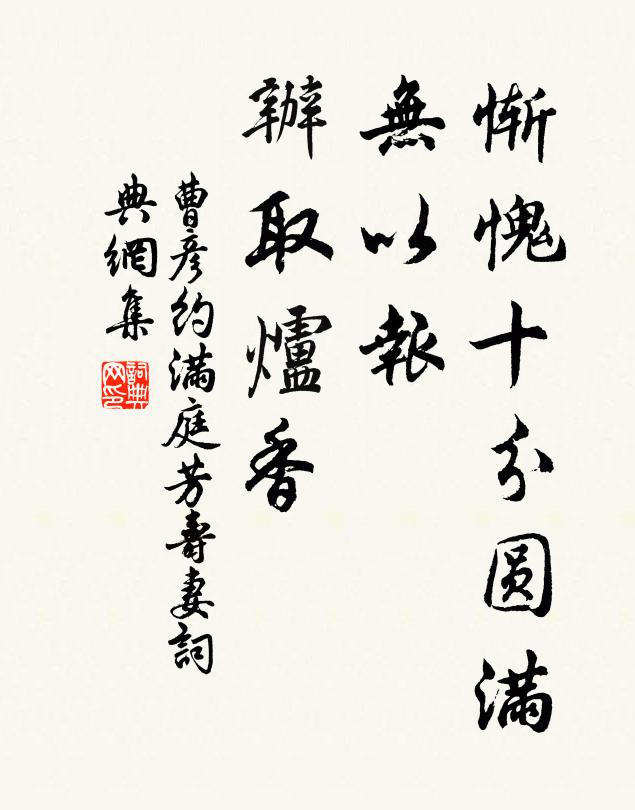 慚愧十分圓滿
無以報
辦取爐香
曹彦約满庭芳壽妻詞
典網集
詞典
网印